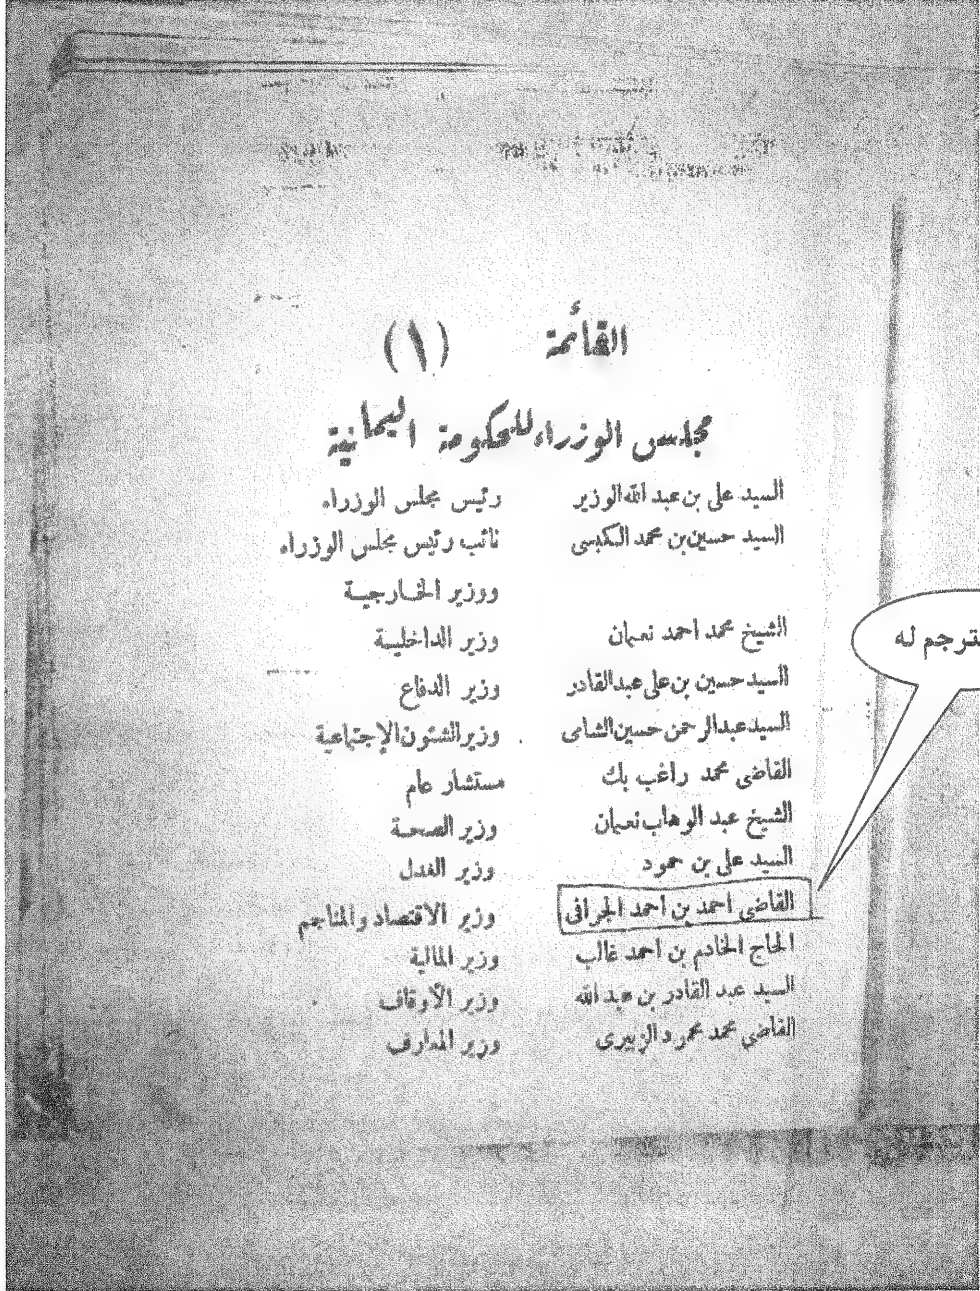 القائمة (١)
مجلس الوزراء للحكومة اليمانية
السيد على بن عبد الله الوزير رئيس مجلس الوزراء
السيد حسين بن محمد الكبسى نائب رئيس مجلس الوزراء
ووزير الخارجية
الشيخ محمد احمد نعمان وزير الداخلية
السيد حسين بن على عبد القادر وزير الدفاع
السيد عبد الرحمن حسين الشامى وزير الشئون الإجتماعية
القاضى محمد راغب بك مستشار عام
الشيخ عبد الوهاب نعمان وزير الصحة
السيد على بن حمود وزير العدل
القاضى احمد بن احمد الجرافى وزير الاقتصاد والمناجم
الحاج الخادم بن احمد غالب وزير المالية
السيد عبد القادر بن عبد الله وزير الأوقاف
القاضي محمد محمود الزبيرى وزير المعارف
مترجم له